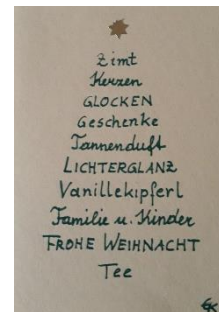 Zimt
Kerzen
GLOCKEN
Geschenke
Tannenduft
LICHTERGLANZ
Vanillekipferl
Familie u. Kinder
FROHE WEIHNACHT
Tee